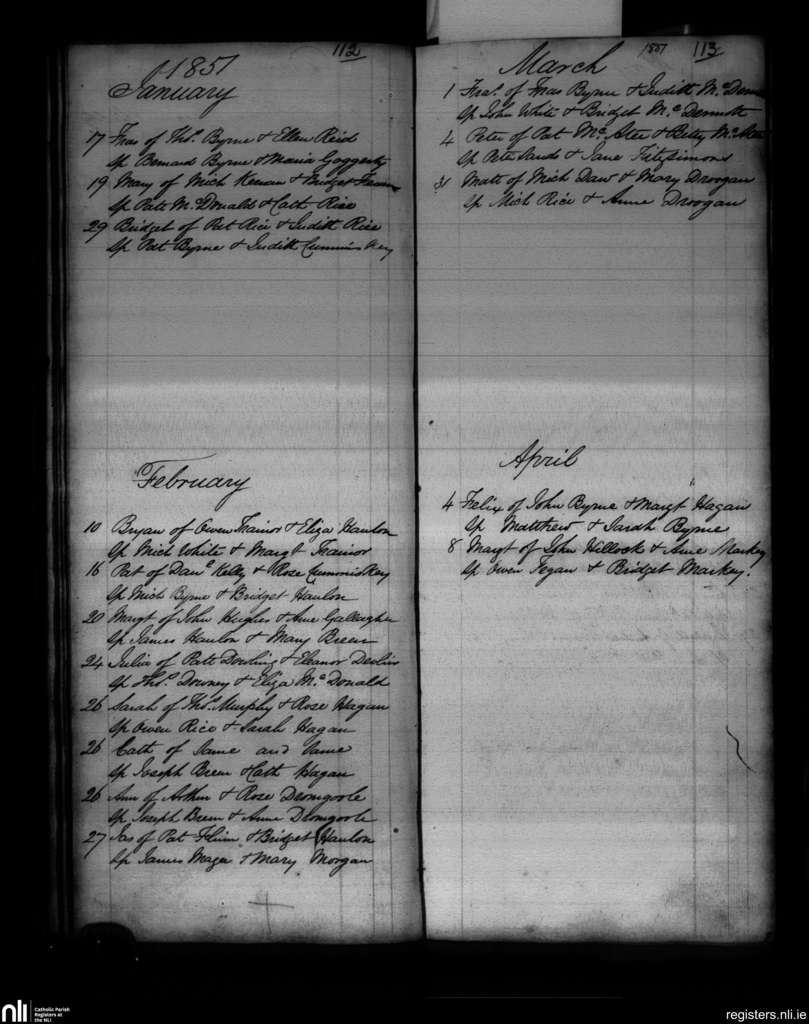 112
1851
January
17 Fras of Thos. Byrne & Ellen Reid
Sp Bernard Byrne & Maria
19 Mary of Mich Keenan & Bridget
Sp Patk McDonald & Cath Rice
29 Bridget of Pat Rice & Judith Rice
Sp Pat Byrne & Judith Cummiskey
February
10 Bryan of Owen Trainor & Eliza Hanlon
Sp Mich White & Margt Trainor
16 Pat of Danl Kelly & Rose Cummiskey
Sp Mich Byrne & Bridget Hanlon
20 Margt of John Hughes & Anne Gallagher
Sp James Hanlon & Mary Breen
24 Julia of Patk Dowling & Eleanor Devlin
Sp Thos. Downey & Eliza McDonald
26 Sarah of Thos. Murphy & Rose Hagan
Sp Owen Rice & Sarah Hagan
26 Cath of Same and Same
Sp Joseph Breen & Cath Hagan
26 Ann of Arthur & Rose Dromgoole
Sp Joseph Breen & Anne Dromgoole
27 Jas of Pat & Bridget Hanlon
Sp James & Mary Morgan
1851 113
March
1 Fras. of Fras Byrne & Judith Mc
Sp John White & Bridget McDermott
4 Peter of Pat McAtee & Betty
Sp Peter Sands & Jane Fitzsimons
31 Matt of Mich Daw & Mary Droogan
Sp Mich Rice & Anne Droogan
April
4 Felix of John Byrne & Margt Hagan
Sp Matthew & Sarah Byrne
8 Margt of John Hillock & Anne Markey
Sp Owen & Bridget Markey.
nli
Catholic Parish
Registers at
the NLI
registers.nli.ie